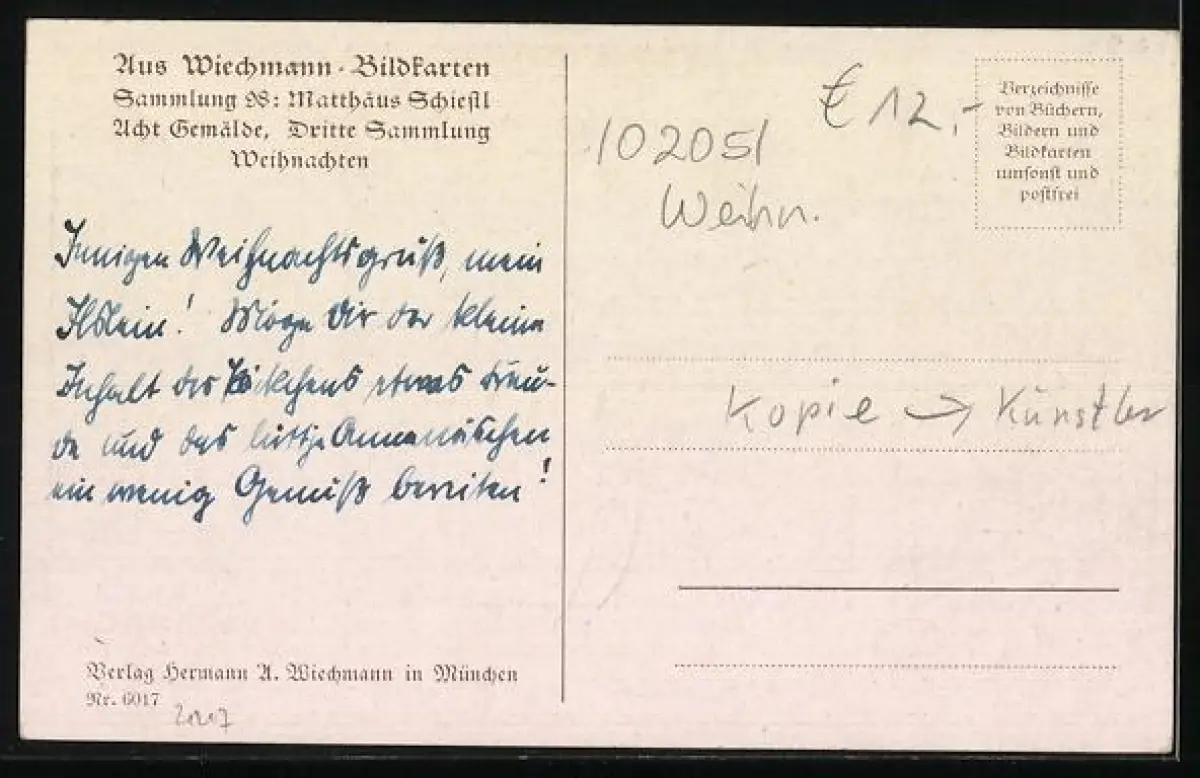 Aus Wiechmann-Bildkarten
Sammlung 98: Matthäus Schiestl
Acht Gemälde, Dritte Sammlung
Weihnachten
Innigen Weihnachtsgruß, mein
Ilslein! Möge Dir der kleine
Inhalt des Päckchens etwas Freu-
de und das
ein wenig Genuß bereiten!
Verlag Hermann A. Wiechmann in München
Nr. 6017
€ 12,-
102051
Weihn.
Verzeichnisse
von Büchern,
Bildern und
Bildkarten
umsonst und
postfrei
Kopie → Künstler